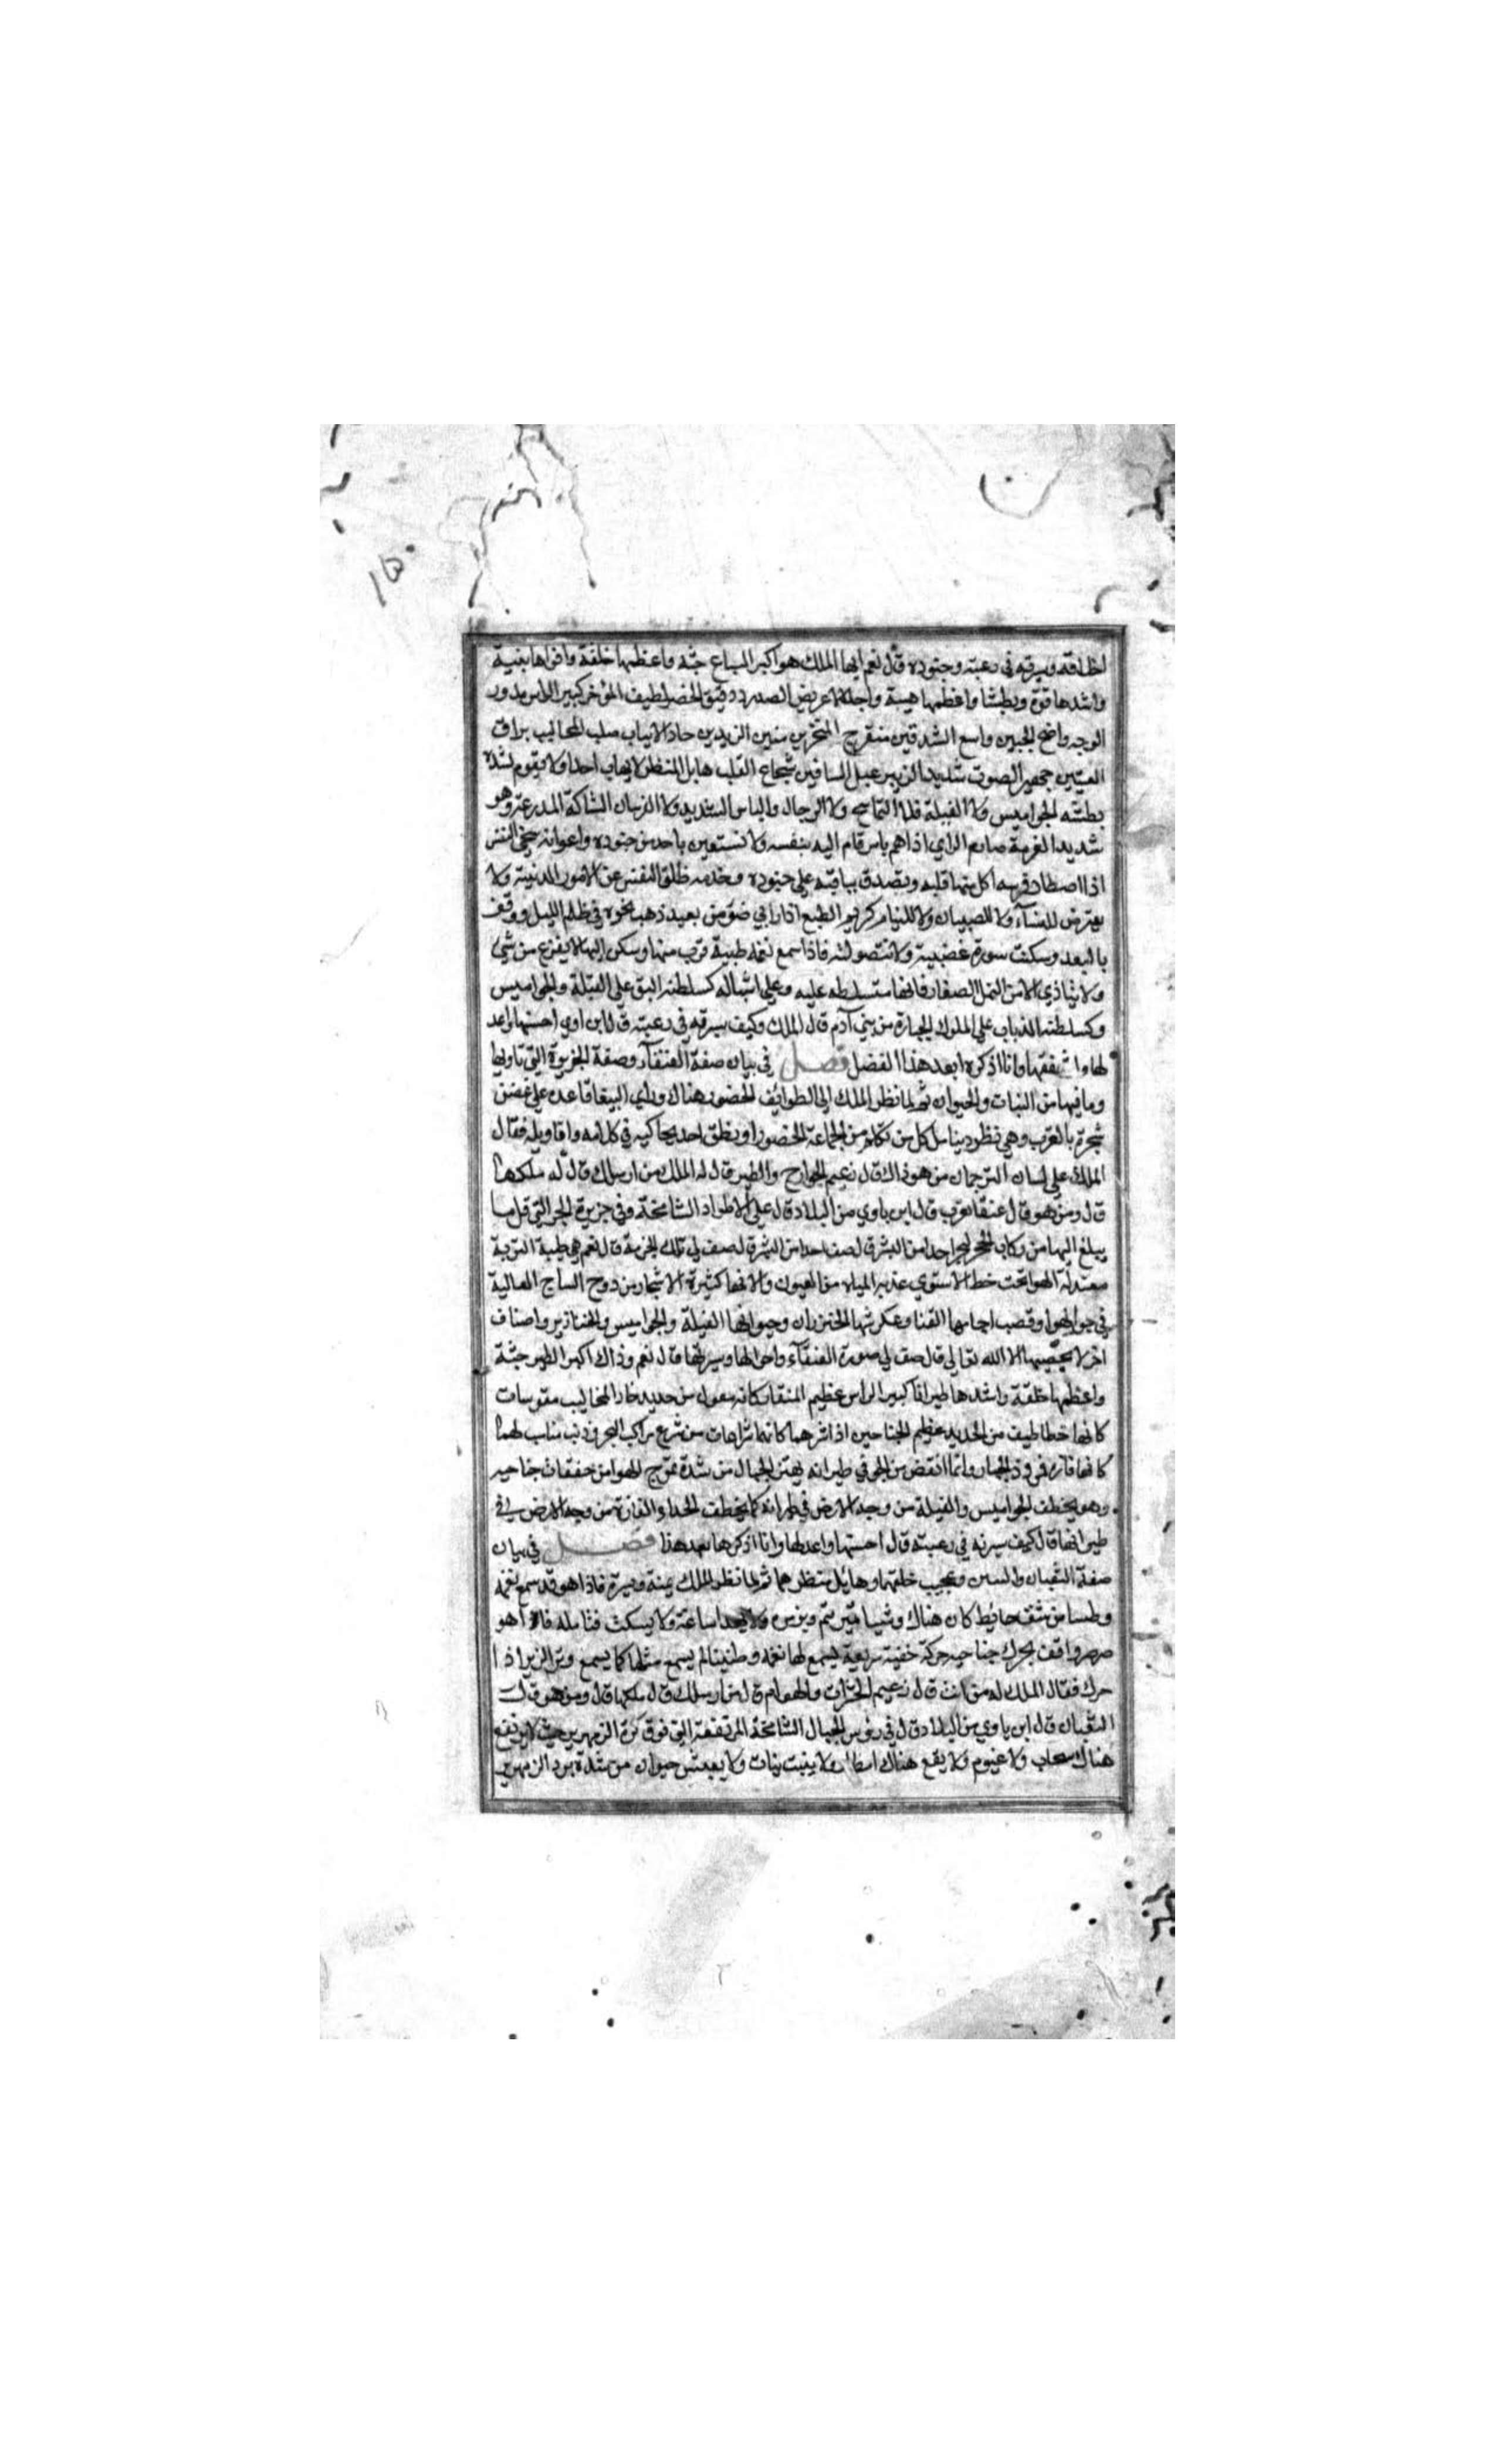 اخلاقه وسيرته في رعيته وجنوده قال نعم ايها الملك هو اكبر السباع جثة واعظمها خلقة واقواها بنية
واشدها قوة وبطشا واعظمها هيبة واجلالا عريض الصدر دقيق الخصر لطيف المؤخر كبير الراس مدور
الوجه واضح الجبين واسع الشدقين منفرج المنخرين متين الزندين حاد الانياب صلب المخاليب براق
العينين جهير الصوت شديد الزبير عبل الساقين شجاع القلب هايل المنظر لا يهاب احدا ولا يقوم لشدة
بطشه الجواميس ولا الفيلة ولا التماسيح ولا الرجال والباس الشديد ولا الفرسان الشاكة المدرعة وهو
شديد العزيمة صارم الراي اذا هم باس قام اليه بنفسه ولا تستعين باحد من جنوده واعوانه سخي النفس
اذا اصطاد فريسه اكل منها قلبه وتصدق بباقيه علي جنوده وخدمه ظلق النفس عن الامور الدنية ولا
يعترض للنساء ولا للصبيان ولا للنيام كريم الطبع اذا راي ضو من بعيد ذهب نحوه في ظلم الليل ووقف
بالبعد وسكنت سورة غضبية ولانت صولته فاذا سمع نغمه طيبة قرب منها وسكن اليها لا يفزع من شي
ولا يتاذي الا من النمل الصغار فانها متسلطه عليه وعلي اشباله كسلطنه البق علي الفيلة والجواميس
وكسلطنه الذباب علي الملوك الجبابرة من بني آدم قال الملك وكيف سيرته في رعيته قال ابن اوي احسنها واعد
لها واشفقها وانا اذكره بعد هذا الفصل فصل في بيان صفة العنقآء وصفة الجزيرة التي تاويها
وما فيها من النبات والحيوان ثم لما نظر الملك الي الطوائف الحضور هناك وراي الببغا قاعده علي غصن
شجرة بالقرب وهي تنظر ويتامل كل من تكلم من الجماعة الحضور او ينطق احد يحاكيه في كلامه واقاويله فقال
الملك علي لسان الترجمان من هو ذاك قال زعيم الجوارح والطير قال له الملك من ارسلك قال له ملكها
قال ومن هو قال عنقا مغرب قال اين ياوي من البلاد قال علي الاطواد الشامخة وفي جزيرة البحر التي قل ما
يبلغ اليها من ركاب البحر احدا من البشر قال صف لي تلك الجزيرة قال نعم هي طيبة التربة
معتدلة الهوا تحت خط الاستوي عذبه المياه من العيون والانهار كثيرة الاشجار من دوح الساج العالية
في جو الهوا وقصب اجامها القنا وعكرشها الخيزران وحيوانها الفيلة والجواميس والخنازير واصناف
اخر لا يحصيها الا الله تعالي قال صف لي صورة العنقآء واحوالها وسيرتها قال نعم وذاك اكبر الطير جثة
واعظمها خلقة واشدها طيرانا كبير الراس عظيم المنقار كانه معول من حديد حاد المخاليب مقوسات
كانها خطاطيف من الحديد عظيم الجناحين اذا نشرهما كانهما شراعان من شرع مراكب البحر وذنب مناسب لهما
كانها واذا انقض من الجو في طيرانه يهتز الجبال من شدة تموج الهوا من خفقات جناحيه
وهو يخطف الجواميس والفيلة من وجه الارض في طيرانه كما يخطف الحداء الفارة من وجه الارض في
طيرانها قال كيف سيرته في رعيته قال احسنها واعدلها وانا اذكرها بعد هذا فصل في بيان
صفة الثعبان والتنين وعجيب خلقتها وهايل منظرهما ثم لما نظر الملك يمنة ويسرة فاذا هو قد سمع نغمه
وطنينا من شقف حايط كان هناك ولا يهدا ساعة ولا يسكت فتامله فاذا هو
صرصر واقف يحرك جناحيه حركة خفية سريعة يسمع لها نغمه وطنينا لم يسمع مثلها كما يسمع وتر الزير اذا
حرك فقال الملك له من انت قال زعيم الحشرات والهوام قال من ارسلك قال ملكها قال ومن هو قال
الثعبان قال اين ياوي من البلاد قال في رؤس الجبال الشامخة المرتفعة التي فوق كرة الزمهرير حيث لا يرتفع
هناك سحاب ولا غيوم ولا يقع هناك امطار ولا ينبت نبات ولا يعيش حيوان من شدة برد الزمهرير